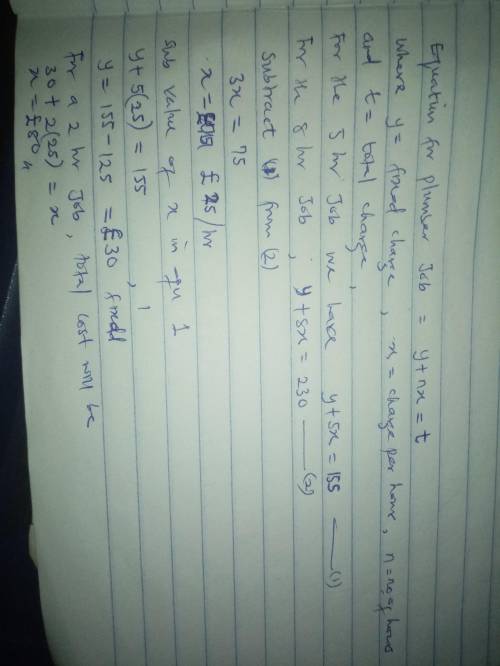 Equation for plumber Job = y+nx = t
where y = fixed charge, x = charge per hour, n = no of hours
and t = total charge,
For the 5 hr Job we have y+5x = 155 —— (1)
For the 8 hr Job, y+8x = 230 —— (2)
Subtract (1) from (2)
3x = 75
x = £25/hr
Sub value of x in equ 1
y + 5(25) = 155,
y = 155 - 125 = £30 fixed
For a 2 hr Job, total cost will be
30 + 2(25) = x
x = £80,,